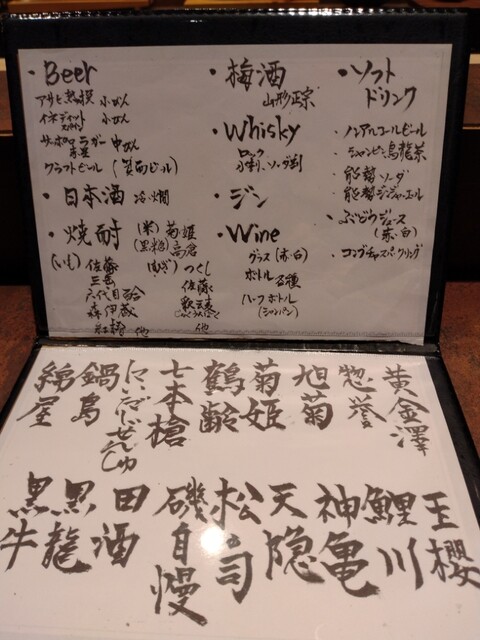 ・Beer
アサヒ熟撰 小びん
小びん
サッポロラガー 中びん
赤星
クラフトビール (箕面ビール)
・日本酒 冷・燗
・焼酎
(米) 菊姫
(黒糖) 高倉
(いも) 佐藤
三岳
六代目百合
森伊蔵
他
(むぎ) つくし
佐藤
他
・梅酒
山形正宗
・Whisky
ロック
水割、ソーダ割
・ジン
・Wine
グラス (赤・白)
ボトル 各種
ハーフボトル
(シャンパン)
・ソフト
ドリンク
・ノンアルコールビール
・ジャスミン烏龍茶
・能勢ソーダ
・能勢ジンジャーエール
・ぶどうジュース
(赤・白)
・コンブチャスパークリング
黄金澤
惣誉
旭菊
菊姫
鶴齢
七本槍
鍋島
綿屋
王櫻
鯉川
神亀
天隠
松の司
磯自慢
田酒
黒龍
黒牛